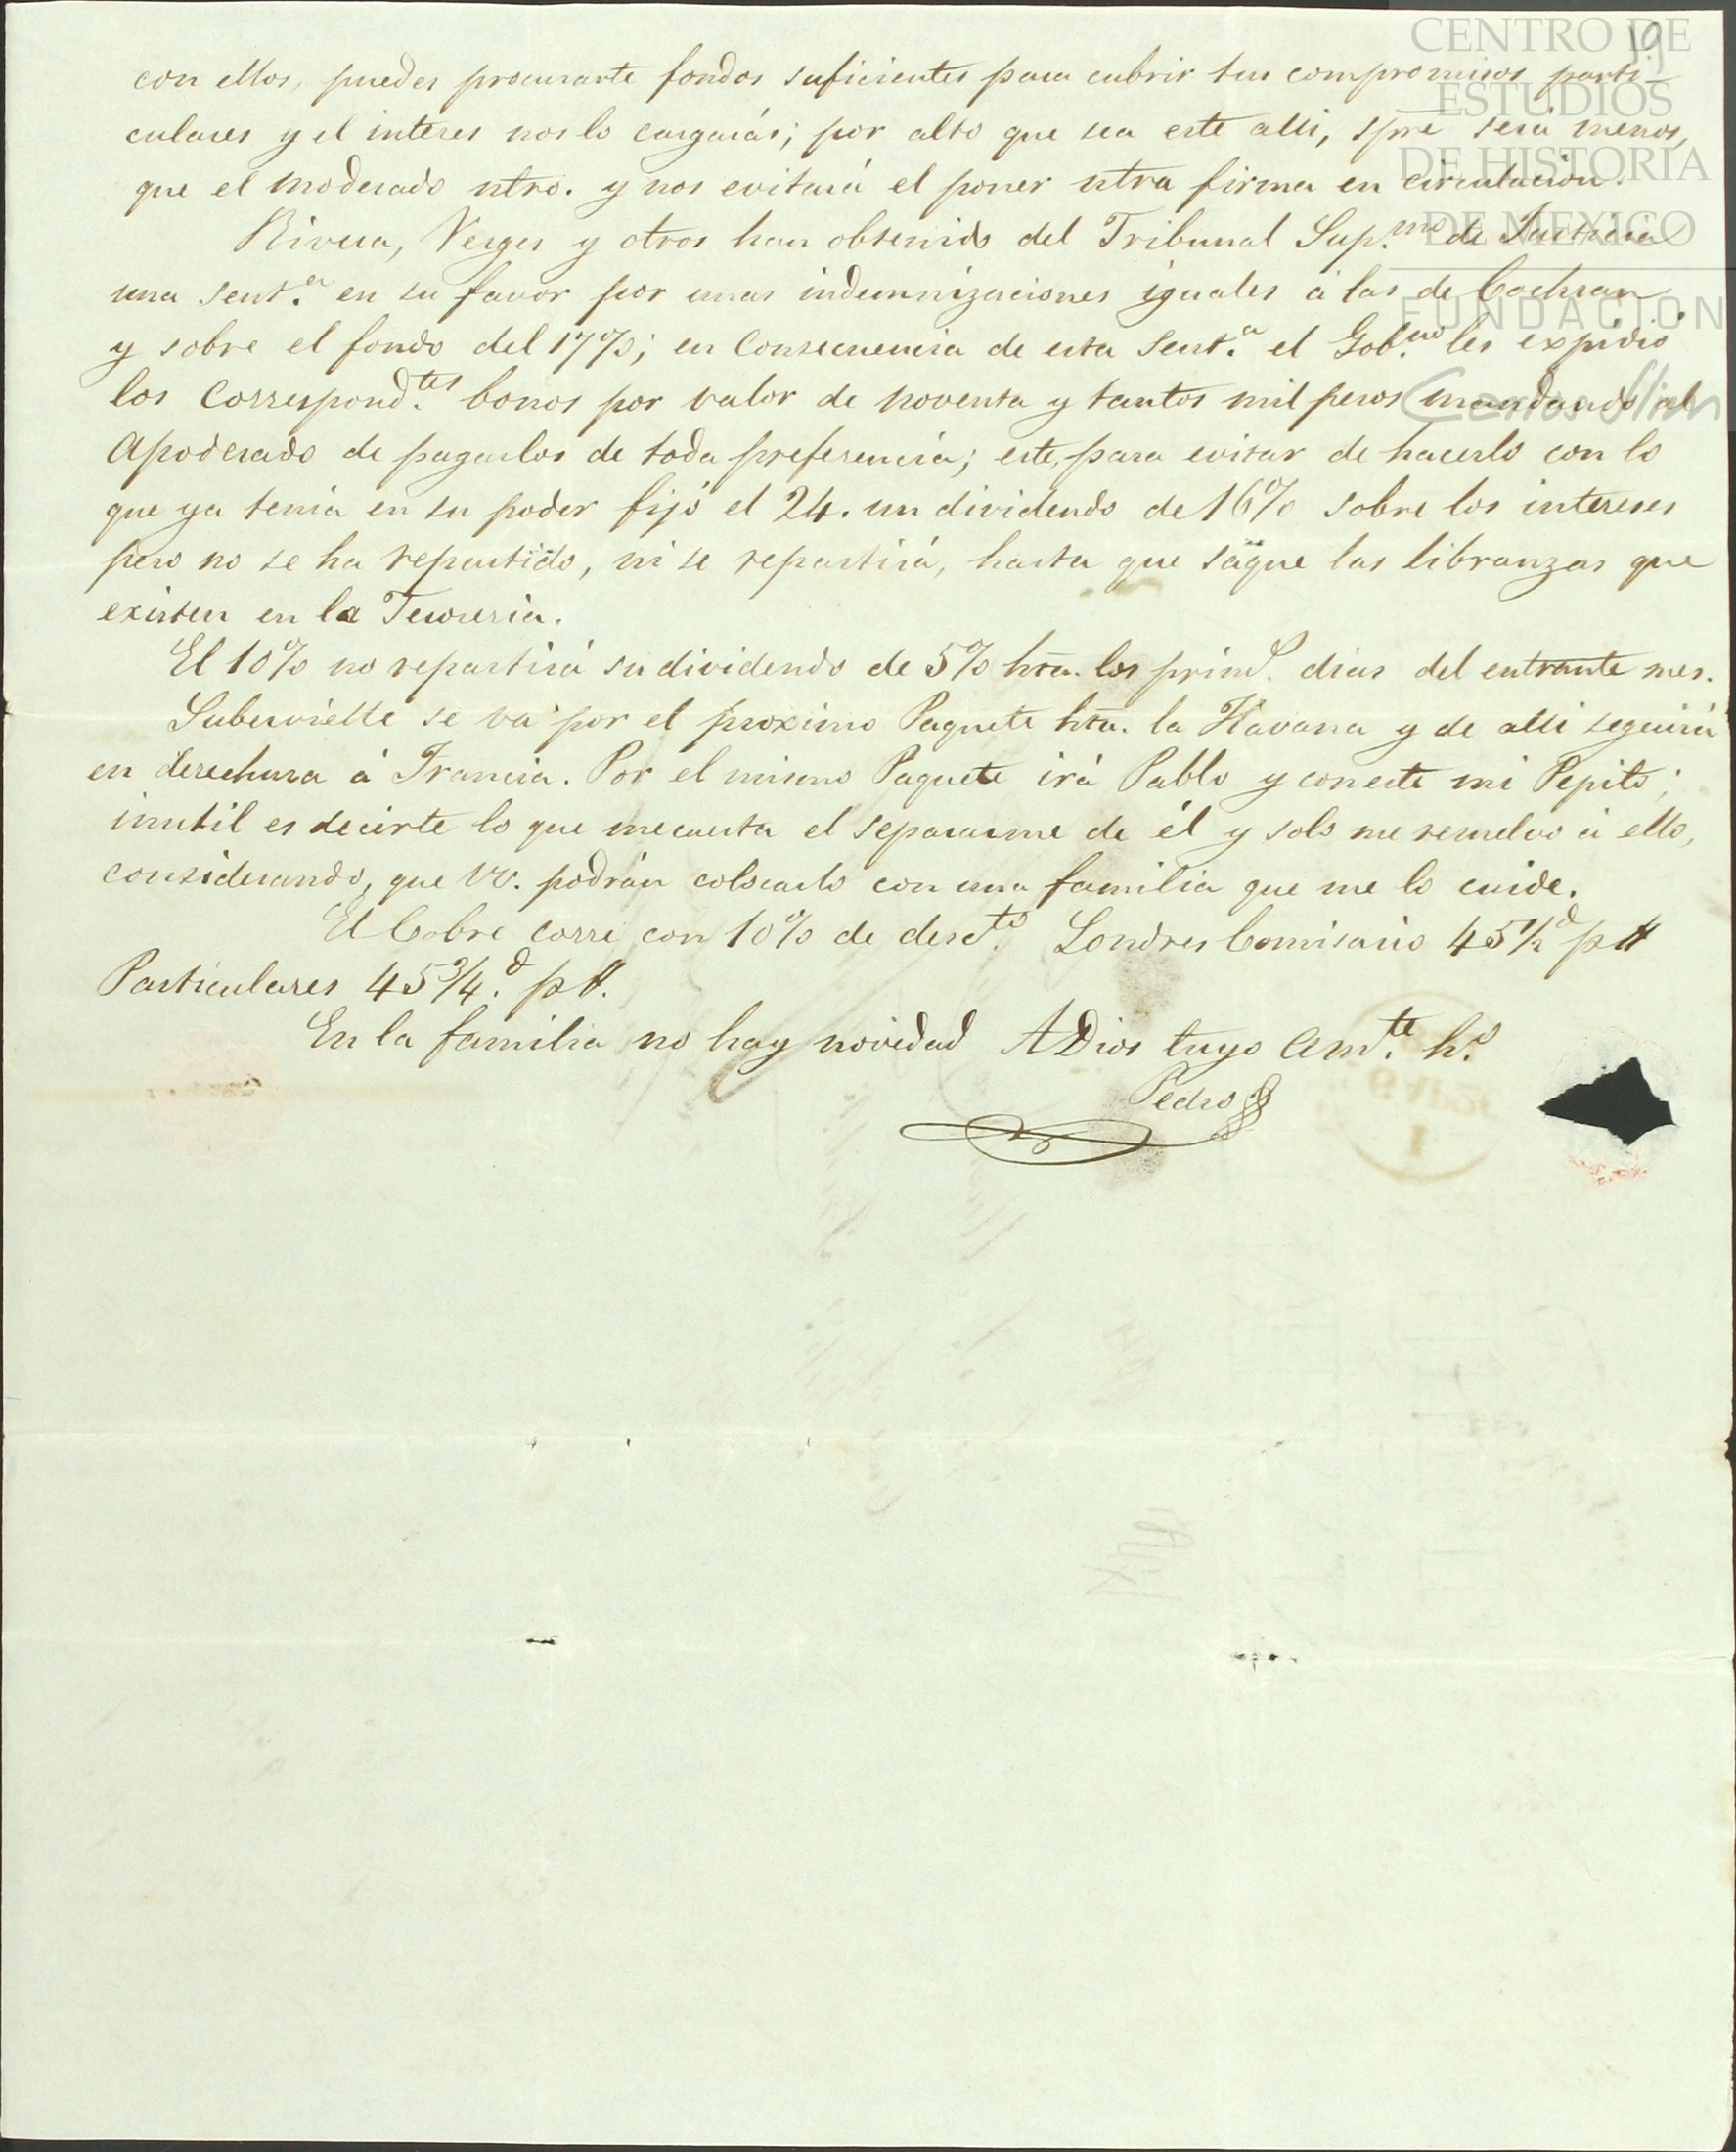 19
CENTRO DE
ESTUDIOS
DE HISTORIA
DE MEXICO
FUNDACIÓN
Carlos Slim
con ellos, puedes procurarte fondos suficientes para cubrir tus compromisos parti-
culares y el interes nos lo cargarás; por alto que sea este alli, spre será menos,
que el moderado ntro. y nos evitará el poner ntra firma en circulación.
Rivera, Verges y otros han obtenido del Tribunal Sup.mo de Justicia
una sent.a en su favor por unas indemnizaciones iguales á las de Cochran
y sobre el fondo del 17%; en consecuencia de esta sent.a el Gob.no les expidió
los correspond.tes bonos por valor de noventa y tantos mil pesos mandando al
Apoderado de pagarlos de toda preferencia; este, para evitar de hacerlo con lo
que ya tenia en su poder fijó el 24. un dividendo de 16% sobre los intereses
pero no se ha repartido, ni se repartirá, hasta que saque las libranzas que
existen en la Tesoreria.
El 10% no repartirá su dividendo de 5% hta. los prim.s dias del entrante mes.
Subervielle se va por el proximo Paquete hta. la Havana y de alli seguirá
en derechura á Francia. Por el mismo Paquete irá Pablo y con este mi Pepito;
inutil es decirte lo que me cuesta el separarme de él y solo me resuelvo á ello,
considerando, que VV. podrán colocarlo con una familia que me lo cuide.
El Cobre corre con 10% de desc.to Londres Comisario 45 1/2 d p $
Particulares 45 3/4 d. p $.
En la familia no hay novedad ADios tuyo am.te h.o
Pedro